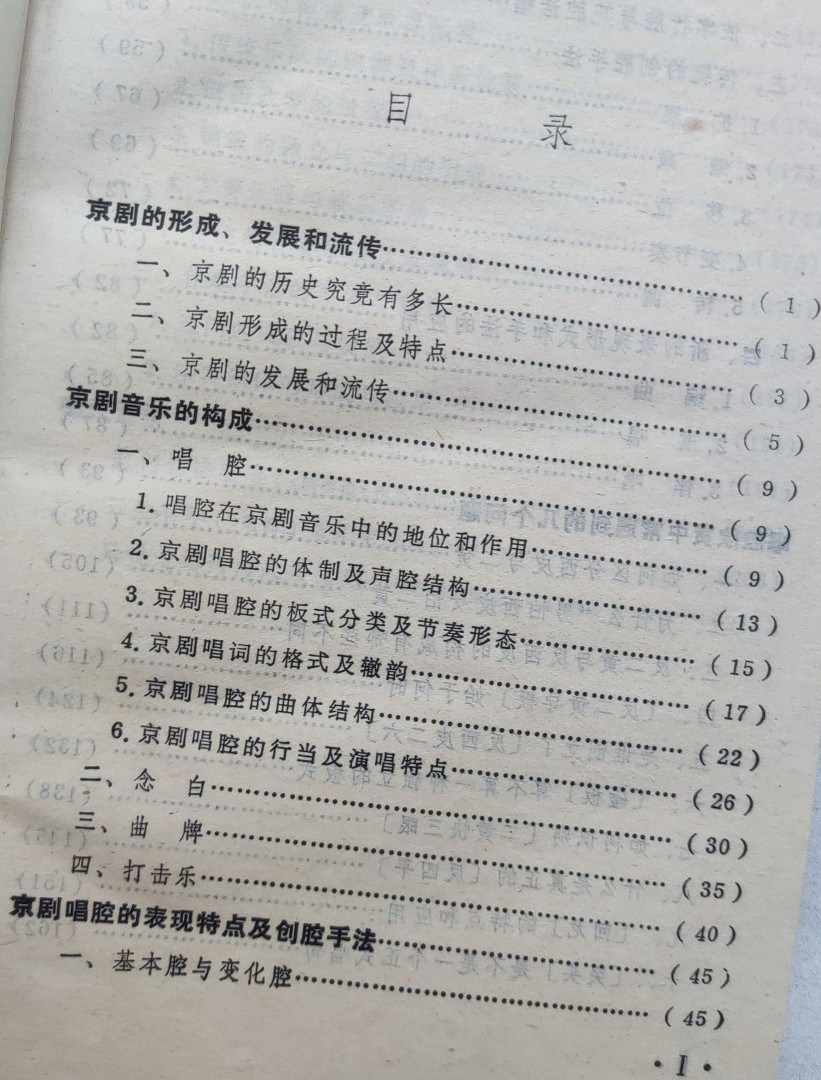 目录
京剧的形成、发展和流传……………………(1)
一、京剧的历史究竟有多长……………………(1)
二、京剧形成的过程及特点……………………(3)
三、京剧的发展和流传……………………(5)
京剧音乐的构成……………………(9)
一、唱 腔……………………(9)
1.唱腔在京剧音乐中的地位和作用……………………(9)
2.京剧唱腔的体制及声腔结构……………………(13)
3.京剧唱腔的板式分类及节奏形态……………………(15)
4.京剧唱词的格式及辙韵……………………(17)
5.京剧唱腔的曲体结构……………………(22)
6.京剧唱腔的行当及演唱特点……………………(26)
二、念 白……………………(30)
三、曲 牌……………………(35)
四、打击乐……………………(40)
京剧唱腔的表现特点及创腔手法……………………(45)
一、基本腔与变化腔……………………(45)
·I·